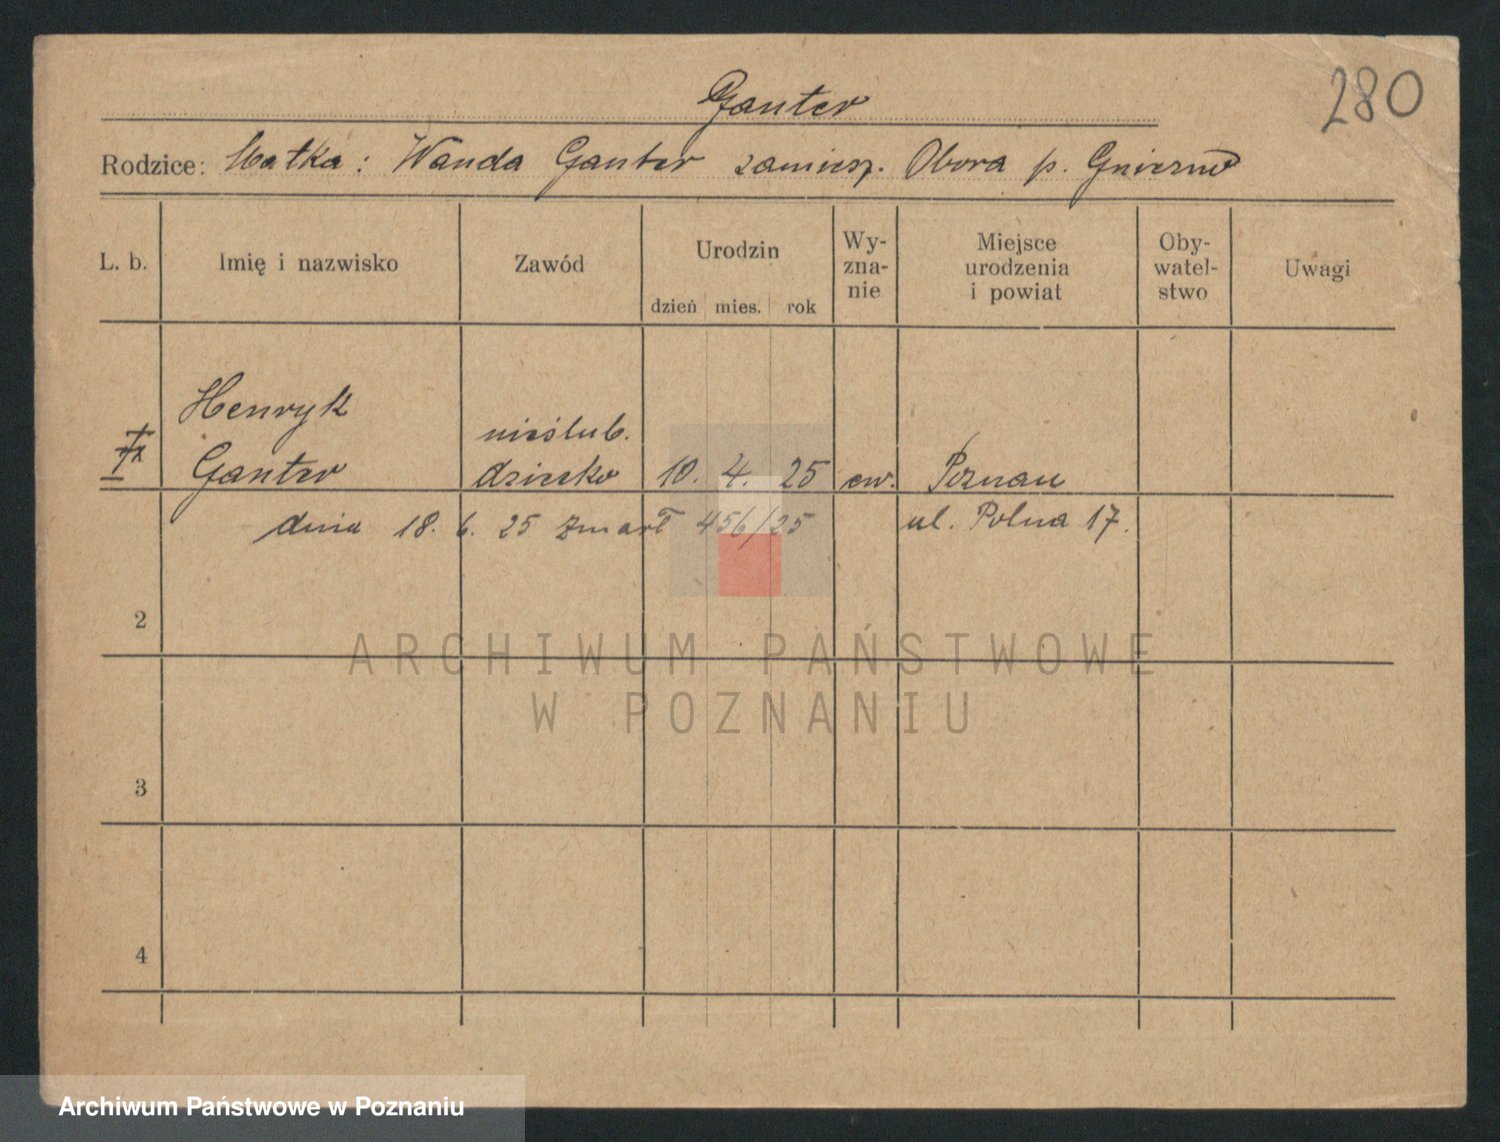 280
Ganter
Rodzice: Matka: Wanda Ganter zamiesz. Obora p. Gniezno
L. b.
Imię i nazwisko
Zawód
Urodzin
dzień mies. rok
Wy-
zna-
nie
Miejsce
urodzenia
i powiat
Oby-
watel-
stwo
Uwagi
Henryk
Ganter
nieślub.
dziecko
10. 4. 25
ew.
Poznań
ul. Polna 17.
dnia 18. 6. 25 zmarł 456/25
2
3
4
ARCHIWUM PAŃSTWOWE
W POZNANIU
Archiwum Państwowe w Poznaniu